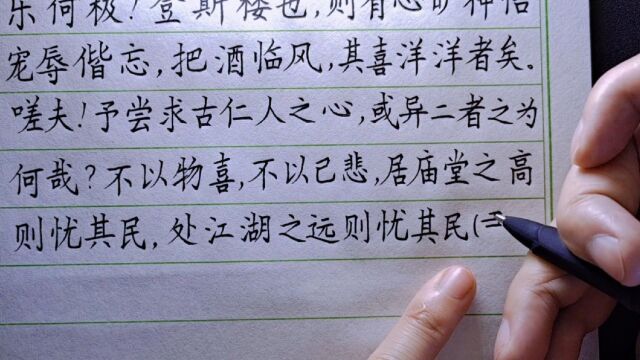 乐何极！登斯楼也，则有心旷神怡
宠辱偕忘，把酒临风，其喜洋洋者矣。
嗟夫！予尝求古仁人之心，或异二者之为
何哉？不以物喜，不以己悲，居庙堂之高
则忧其民，处江湖之远则忧其民(